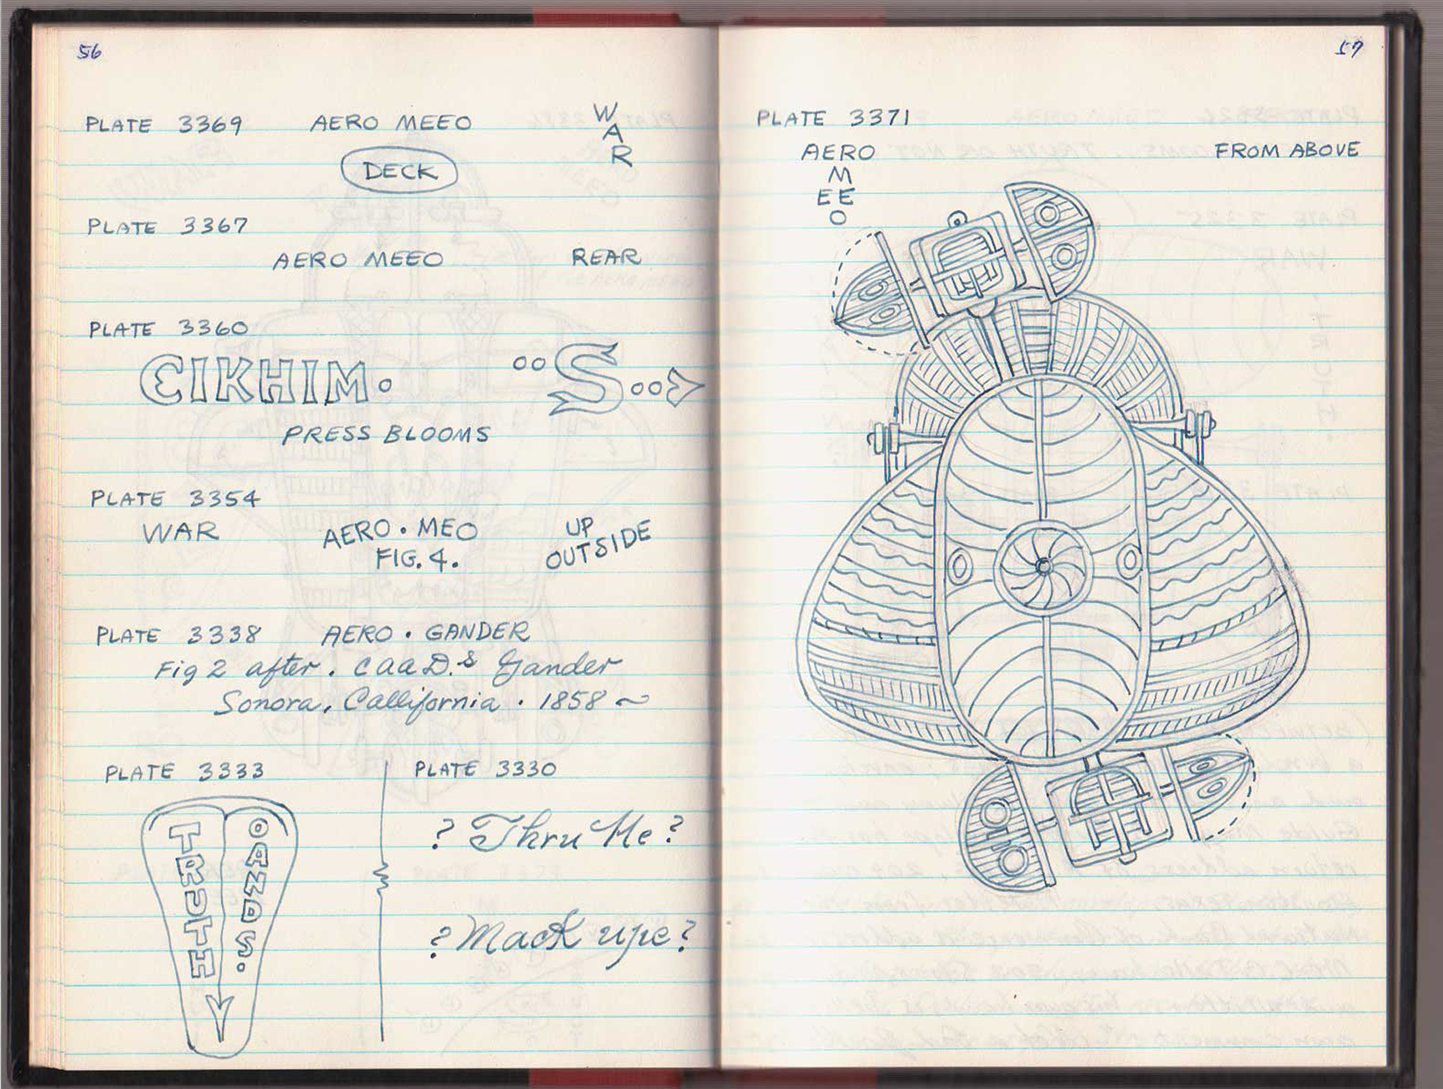 56
PLATE 3369 AERO MEEO WAR
DECK
PLATE 3367
AERO MEEO REAR
PLATE 3360
CIKHIM. S
PRESS BLOOMS
PLATE 3354
WAR AERO • MEO UP
FIG. 4. OUTSIDE
PLATE 3338 AERO • GANDER
Fig 2 after . CAAD.S Gander
Sonora, Callifornia . 1858 ~
PLATE 3333
TRUTH
OANDS.
PLATE 3330
? Thru Me ?
? Mack upe ?
57
PLATE 3371
AERO FROM ABOVE
M
EE
O